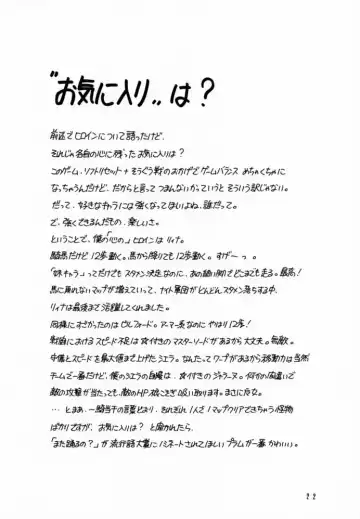 "お気に入り"は？
前述でヒロインについて語ったけど、
それじゃ各自の心に残ったお気に入りは？
このゲーム、ソフトリセット＋そうぐう戦のおかげでゲームバランスめちゃくちゃに
なっちゃうんだけど、だからと言ってつまんないかっていうとそういう訳じゃない。
だって、好きなキャラには強くなってほしいよね、誰だって。
で、強くできるんだもの、楽しいさ。
ということで、僕の「心の」ヒロインはリィナ。
騎馬だけど12歩動く。馬から降りても12歩動く。すげーっ。
「妹キャラ」ってだけでもスタメン決定なのに、あの細い脚でどこまでも走る。最高！
馬に乗れないマップが増えていって、ナイト軍団がどんどんスタメン落ちする中、
リィナは最後まで活躍してくれました。
同様にすさまかったのはビルフォード。アーマー系なのにやはり12歩！
敵庭におけるスピード不足は★付きのマスターソードがあるから大丈夫。無敵。
中儀とスピードを最大値まで上げたシエラ。なんたってワープがあるから移動力は当然
チームで一番だけど、僕のシエラの自慢は、★付きのジャラーヌ。何かの間違いで
敵の攻撃が当たっても、敵のHP根こそぎ吸い取ります。まさに反な。
…とまあ、一騎当千の言葉どおり、おのぞれ1人で1マップクリアできちゃう怪物
ばかりですが、お気に入りは？と聞かれたら、
「また踊るの？」が流行語大賞にノミネートされてほしいプラムが一番かわいい。
22